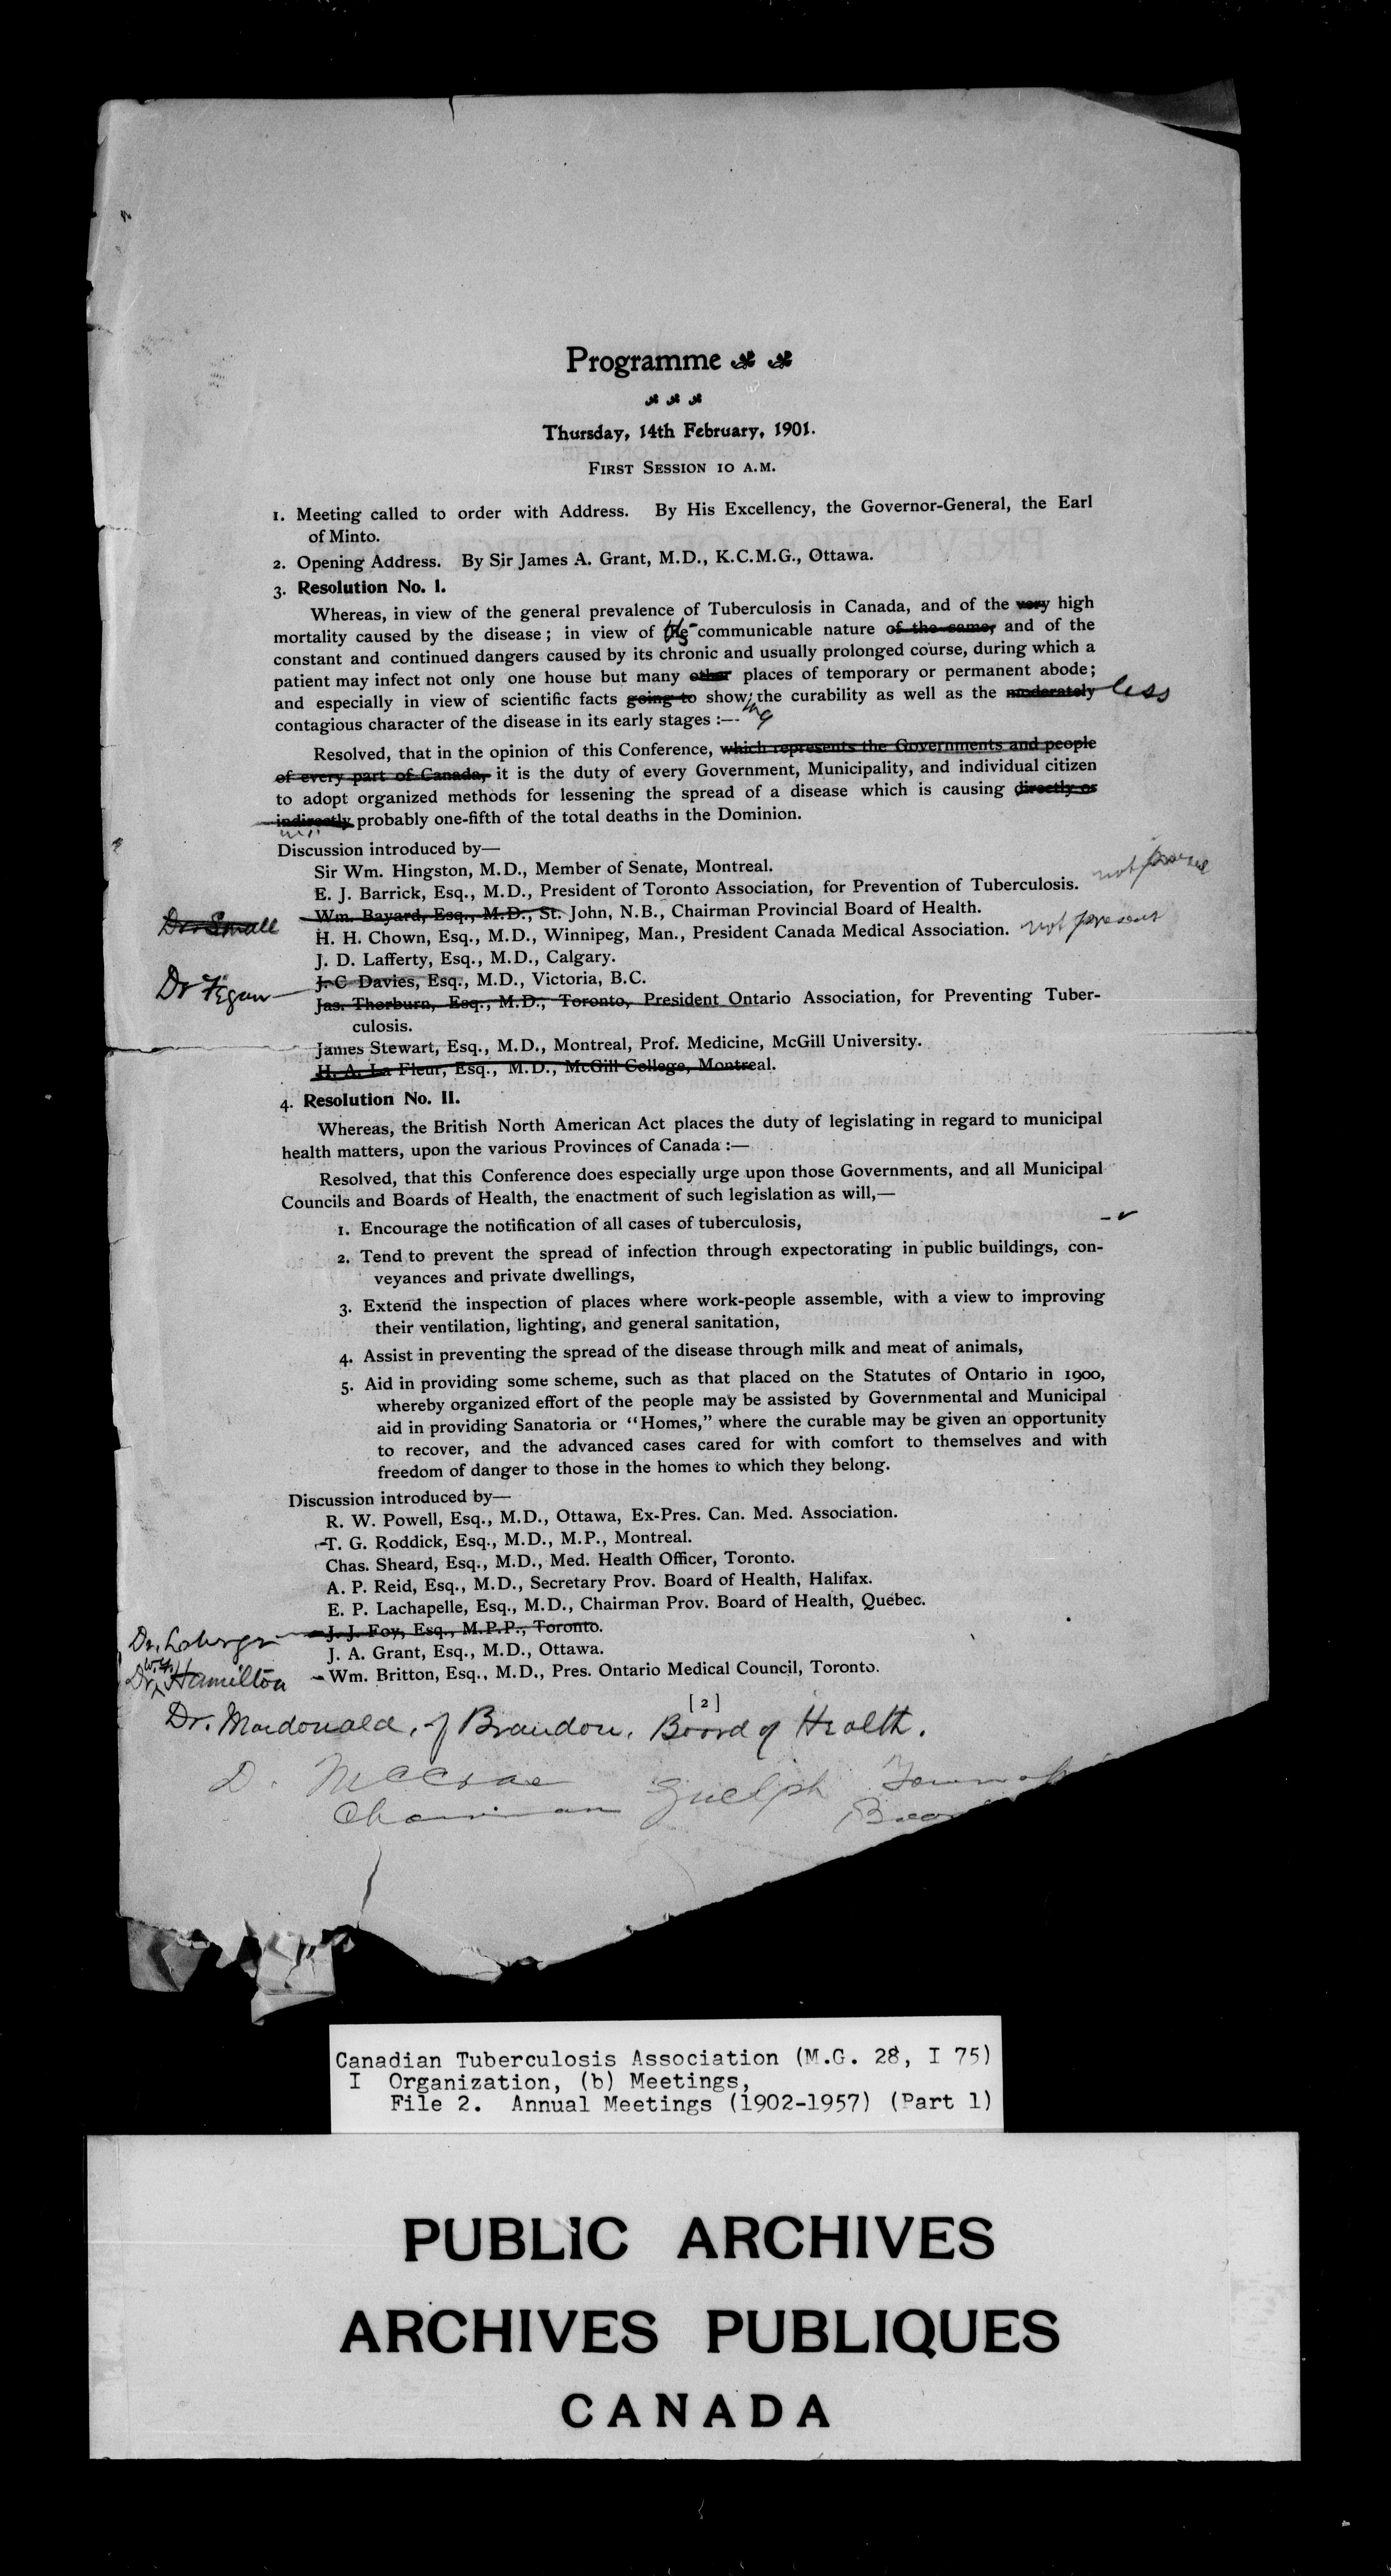 Programme
Thursday, 14th February, 1901.
FIRST SESSION 10 A.M.
1. Meeting called to order with Address. By His Excellency, the Governor-General, the Earl
of Minto.
2. Opening Address. By Sir James A. Grant, M.D., K.C.M.G., Ottawa.
3. Resolution No. I.
Whereas, in view of the general prevalence of Tuberculosis in Canada, and of the very high
mortality caused by the disease; in view of its communicable nature of the same, and of the
constant and continued dangers caused by its chronic and usually prolonged course, during which a
patient may infect not only one house but many other places of temporary or permanent abode;
and especially in view of scientific facts going to show ing the curability as well as the moderately less
contagious character of the disease in its early stages :—
Resolved, that in the opinion of this Conference, which represents the Governments and people
of every part of Canada, it is the duty of every Government, Municipality, and individual citizen
to adopt organized methods for lessening the spread of a disease which is causing directly or
indirectly probably one-fifth of the total deaths in the Dominion.
Discussion introduced by—
Sir Wm. Hingston, M.D., Member of Senate, Montreal.
E. J. Barrick, Esq., M.D., President of Toronto Association, for Prevention of Tuberculosis. not present
Dr Small Wm. Bayard, Esq., M.D., St. John, N.B., Chairman Provincial Board of Health.
H. H. Chown, Esq., M.D., Winnipeg, Man., President Canada Medical Association. not present
J. D. Lafferty, Esq., M.D., Calgary.
Dr Fegan J. C. Davies, Esq., M.D., Victoria, B.C.
Jas. Thorburn, Esq., M.D., Toronto, President Ontario Association, for Preventing Tuber-
culosis.
James Stewart, Esq., M.D., Montreal, Prof. Medicine, McGill University.
H. A. La Fleur, Esq., M.D., McGill College, Montreal.
4. Resolution No. II.
Whereas, the British North American Act places the duty of legislating in regard to municipal
health matters, upon the various Provinces of Canada :—
Resolved, that this Conference does especially urge upon those Governments, and all Municipal
Councils and Boards of Health, the enactment of such legislation as will,—
1. Encourage the notification of all cases of tuberculosis,
2. Tend to prevent the spread of infection through expectorating in public buildings, con-
veyances and private dwellings,
3. Extend the inspection of places where work-people assemble, with a view to improving
their ventilation, lighting, and general sanitation,
4. Assist in preventing the spread of the disease through milk and meat of animals,
5. Aid in providing some scheme, such as that placed on the Statutes of Ontario in 1900,
whereby organized effort of the people may be assisted by Governmental and Municipal
aid in providing Sanatoria or "Homes," where the curable may be given an opportunity
to recover, and the advanced cases cared for with comfort to themselves and with
freedom of danger to those in the homes to which they belong.
Discussion introduced by—
R. W. Powell, Esq., M.D., Ottawa, Ex-Pres. Can. Med. Association.
T. G. Roddick, Esq., M.D., M.P., Montreal.
Chas. Sheard, Esq., M.D., Med. Health Officer, Toronto.
A. P. Reid, Esq., M.D., Secretary Prov. Board of Health, Halifax.
E. P. Lachapelle, Esq., M.D., Chairman Prov. Board of Health, Québec.
Dr. Laberge J. J. Foy, Esq., M.P.P., Toronto.
J. A. Grant, Esq., M.D., Ottawa.
Dr. Hamilton Wm. Britton, Esq., M.D., Pres. Ontario Medical Council, Toronto.
[ 2 ]
Dr. Macdonald, of Brandon, Board of Health.
D. McCrae Guelph
Chairman
Canadian Tuberculosis Association (M.G. 28, I 75)
I Organization, (b) Meetings,
File 2. Annual Meetings (1902-1957) (Part 1)
PUBLIC ARCHIVES
ARCHIVES PUBLIQUES
CANADA